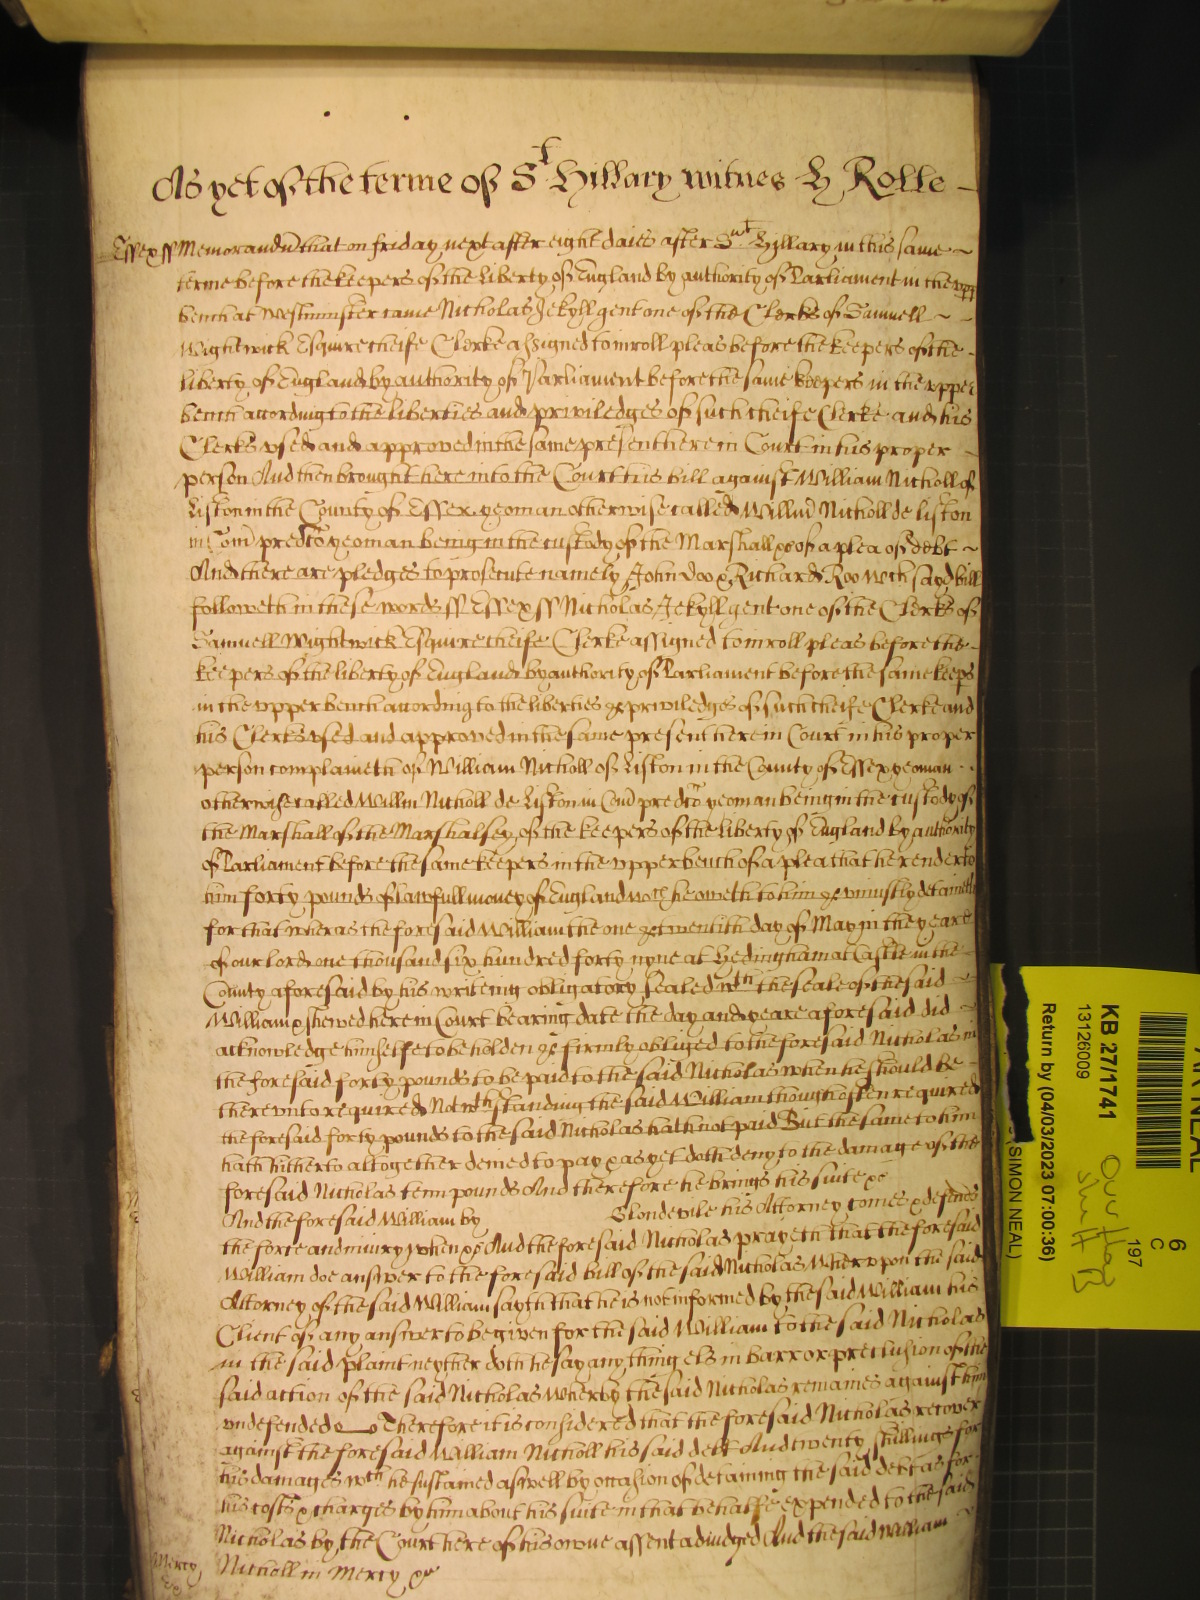 As yet of the terme of St Hillary witnes H Rolle
Essex ss Memorandu that on friday next after eight daies after Snt Hillary in this same
terme before the keepers of the liberty of England by authority of Parliament in the upp
bench at Westminster came Nicholas Jekyll gent one of the Clerks of Samuell
Wightwick Esquire cheife Clerke assigned to inroll pleas before the keepers of the
liberty of England by authority of Parliament before the same keepers in the upper
bench according to the liberties and priviledges of such cheife Clerke and his
Clerks used and approved in the same present here in Court in his proper
person And then brought here into the Court his bill against William Nicholl of
Liston in the County of Essex yeoman otherwise called Willm Nicholl de liston
in Com predco yeoman being in the custody of the Marshall &c of a plea of debt
And there are pledges to prosecute namely John Doo & Richard Roo wch sayd bill
followeth in these words ss Essex ss Nicholas Jekyll gent one of the Clerks of
Samuell Wightwick Esquire cheife Clerke assigned to inroll pleas before the
keepers of the liberty of England by authority of Parliament before the same keeps
in the upper bench according to the liberties & priviledges of such cheife Clerke and
his Clerks used and approved in the same present here in Court in his proper
person complaineth of William Nicholl of Liston in the County of Essex yeoman
otherwise called Willm Nicholl de Liston in Com predco yeoman being in the custody of
the Marshall of the Marshalsey of the keepers of the liberty of England by authority
of Parliament before the same keepers in the upper bench of a plea that he render to
him forty pounds of lawfull money of England wch he oweth to him & uniustly detaineth
for that wheras the foresaid William the one & twentith day of May in the yeare
of our lord one thousand six hundred forty nyne at Hedingham at Castle in the
County aforesaid by his writeing obligatory sealed wth the seale of the said
William & shewed here in Court bearing date the day and yeare aforesaid did
acknowledge himselfe to be holden & firmly obliged to the foresaid Nicholas in
the foresaid forty pounds to be paid to the said Nicholas when he should be
thereunto required Notwthstanding the said William though often required
the foresaid forty pounds to the said Nicholas hath not paid But the same to him
hath hitherto altogether denied to pay & as yet doth deny to the damage of the
foresaid Nicholas tenn pounds And therefore he brings his suite &c
And the foresaid William by Blondevile his Attorney comes & defends
the force and iniury when &c And the foresaid Nicholas prayeth that the foresaid
William doe answer to the foresaid bill of the said Nicholas Wherupon the said
Attorney of the said William sayth that he is not informed by the said William his
Client of any answer to be given for the said William to the said Nicholas
in the said plaint neyther doth he say any thing els in barr or preclusion of the
said action of the said Nicholas wherby the said Nicholas remaines against him
undefended Therefore it is considered that the foresaid Nicholas recover
against the foresaid William Nicholl his said debt And twenty shillings for
his damages wch he sustained aswell by occasion of detaining the said debt as for
his costs & charges by him about his suite in that behalfe expended to the said
Nicholas by the Court here of his owne assent adiudged And the said William
Mercy &c
Nicholl in Mercy &c
KB 27/1741
13126009
Return by (04/03/2023 07:00:36)
(SIMON NEAL)
6
C
197